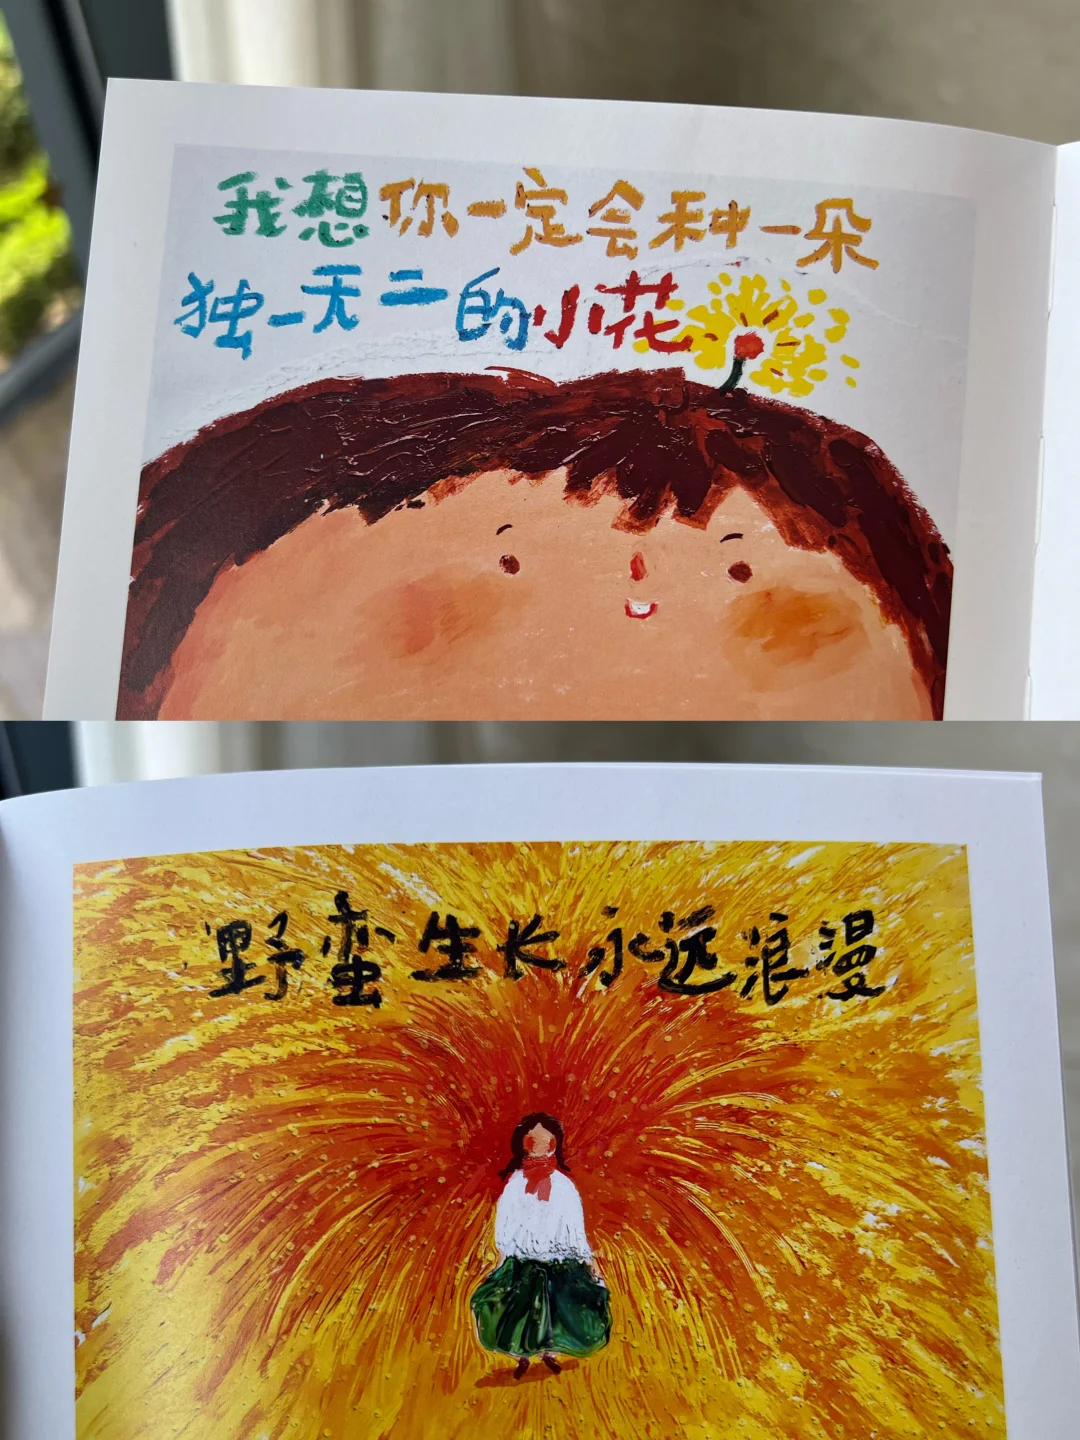 我想你一定会种一朵
独一无二的小花
野蛮生长永远浪漫